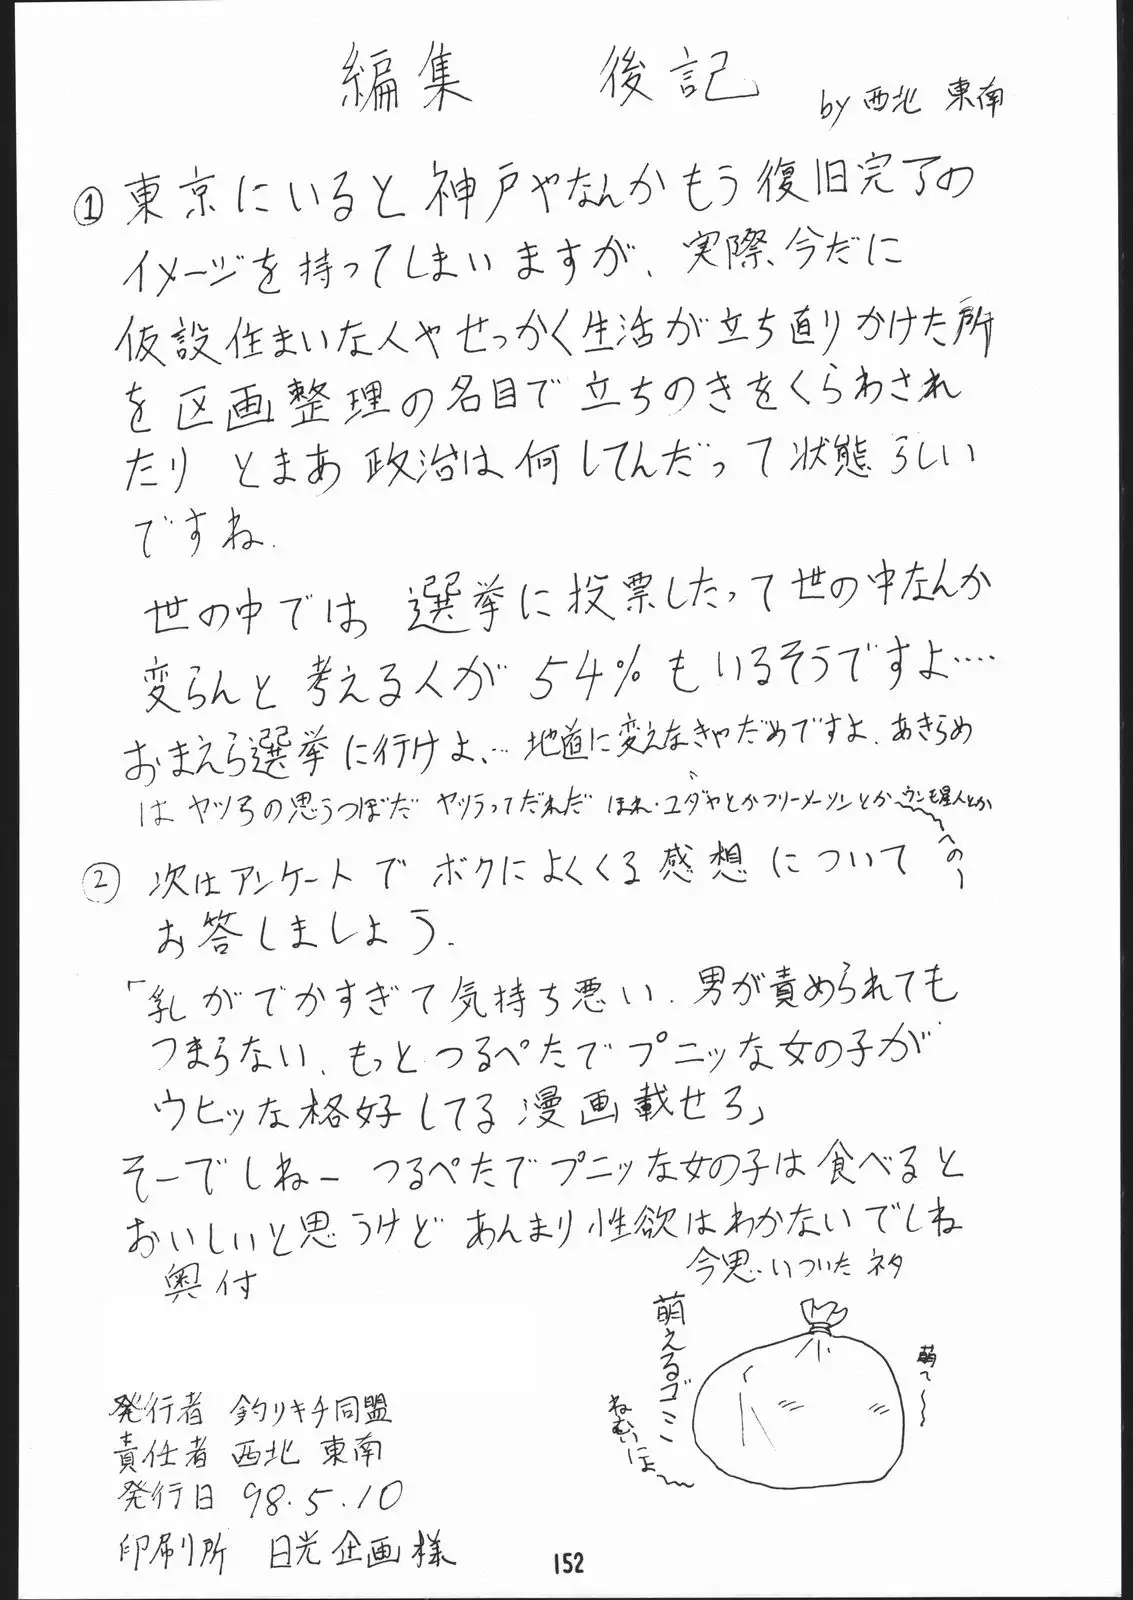 編集 後記 by 西北 東南
① 東京にいると神戸やなんかもう復旧完了の
イメージを持ってしまいますが、実際、今だに
仮設住まいな人やせっかく生活が立ち直りかけた所
を区画整理の名目で立ちのきをくらわされ
たり とまあ 政治は何してんだって状態らしい
ですね.
世の中では 選挙に投票したって世の中なんか
変らんと考える人が54%もいるそうですよ‥‥
おまえら選挙に行けよ、… 地道に変えなきゃだめですよ. あきらめ
は ヤツらの思うつぼだ ヤツラってだれだ ほれ・ユダヤとかフリーメーソンとか ウンモ星人とか
へのー
② 次はアンケートで ボクによくくる感想について
お答しましょう.
「乳がでかすぎて気持ち悪い. 男が責められても
つまらない、もっとつるぺたでプニッな女の子が
ウヒッな格好してる漫画載せろ」
そーでしねー つるぺたでプニッな女の子は食べると
おいしいと思うけど あんまり性欲はわかないでしね
今思いついたネタ
萌えるゴミ
ねむいにょ〜
萌て〜
奥付
発行者 釣りキチ同盟
責任者 西北 東南
発行日 98.5.10
印刷所 日光企画様
152